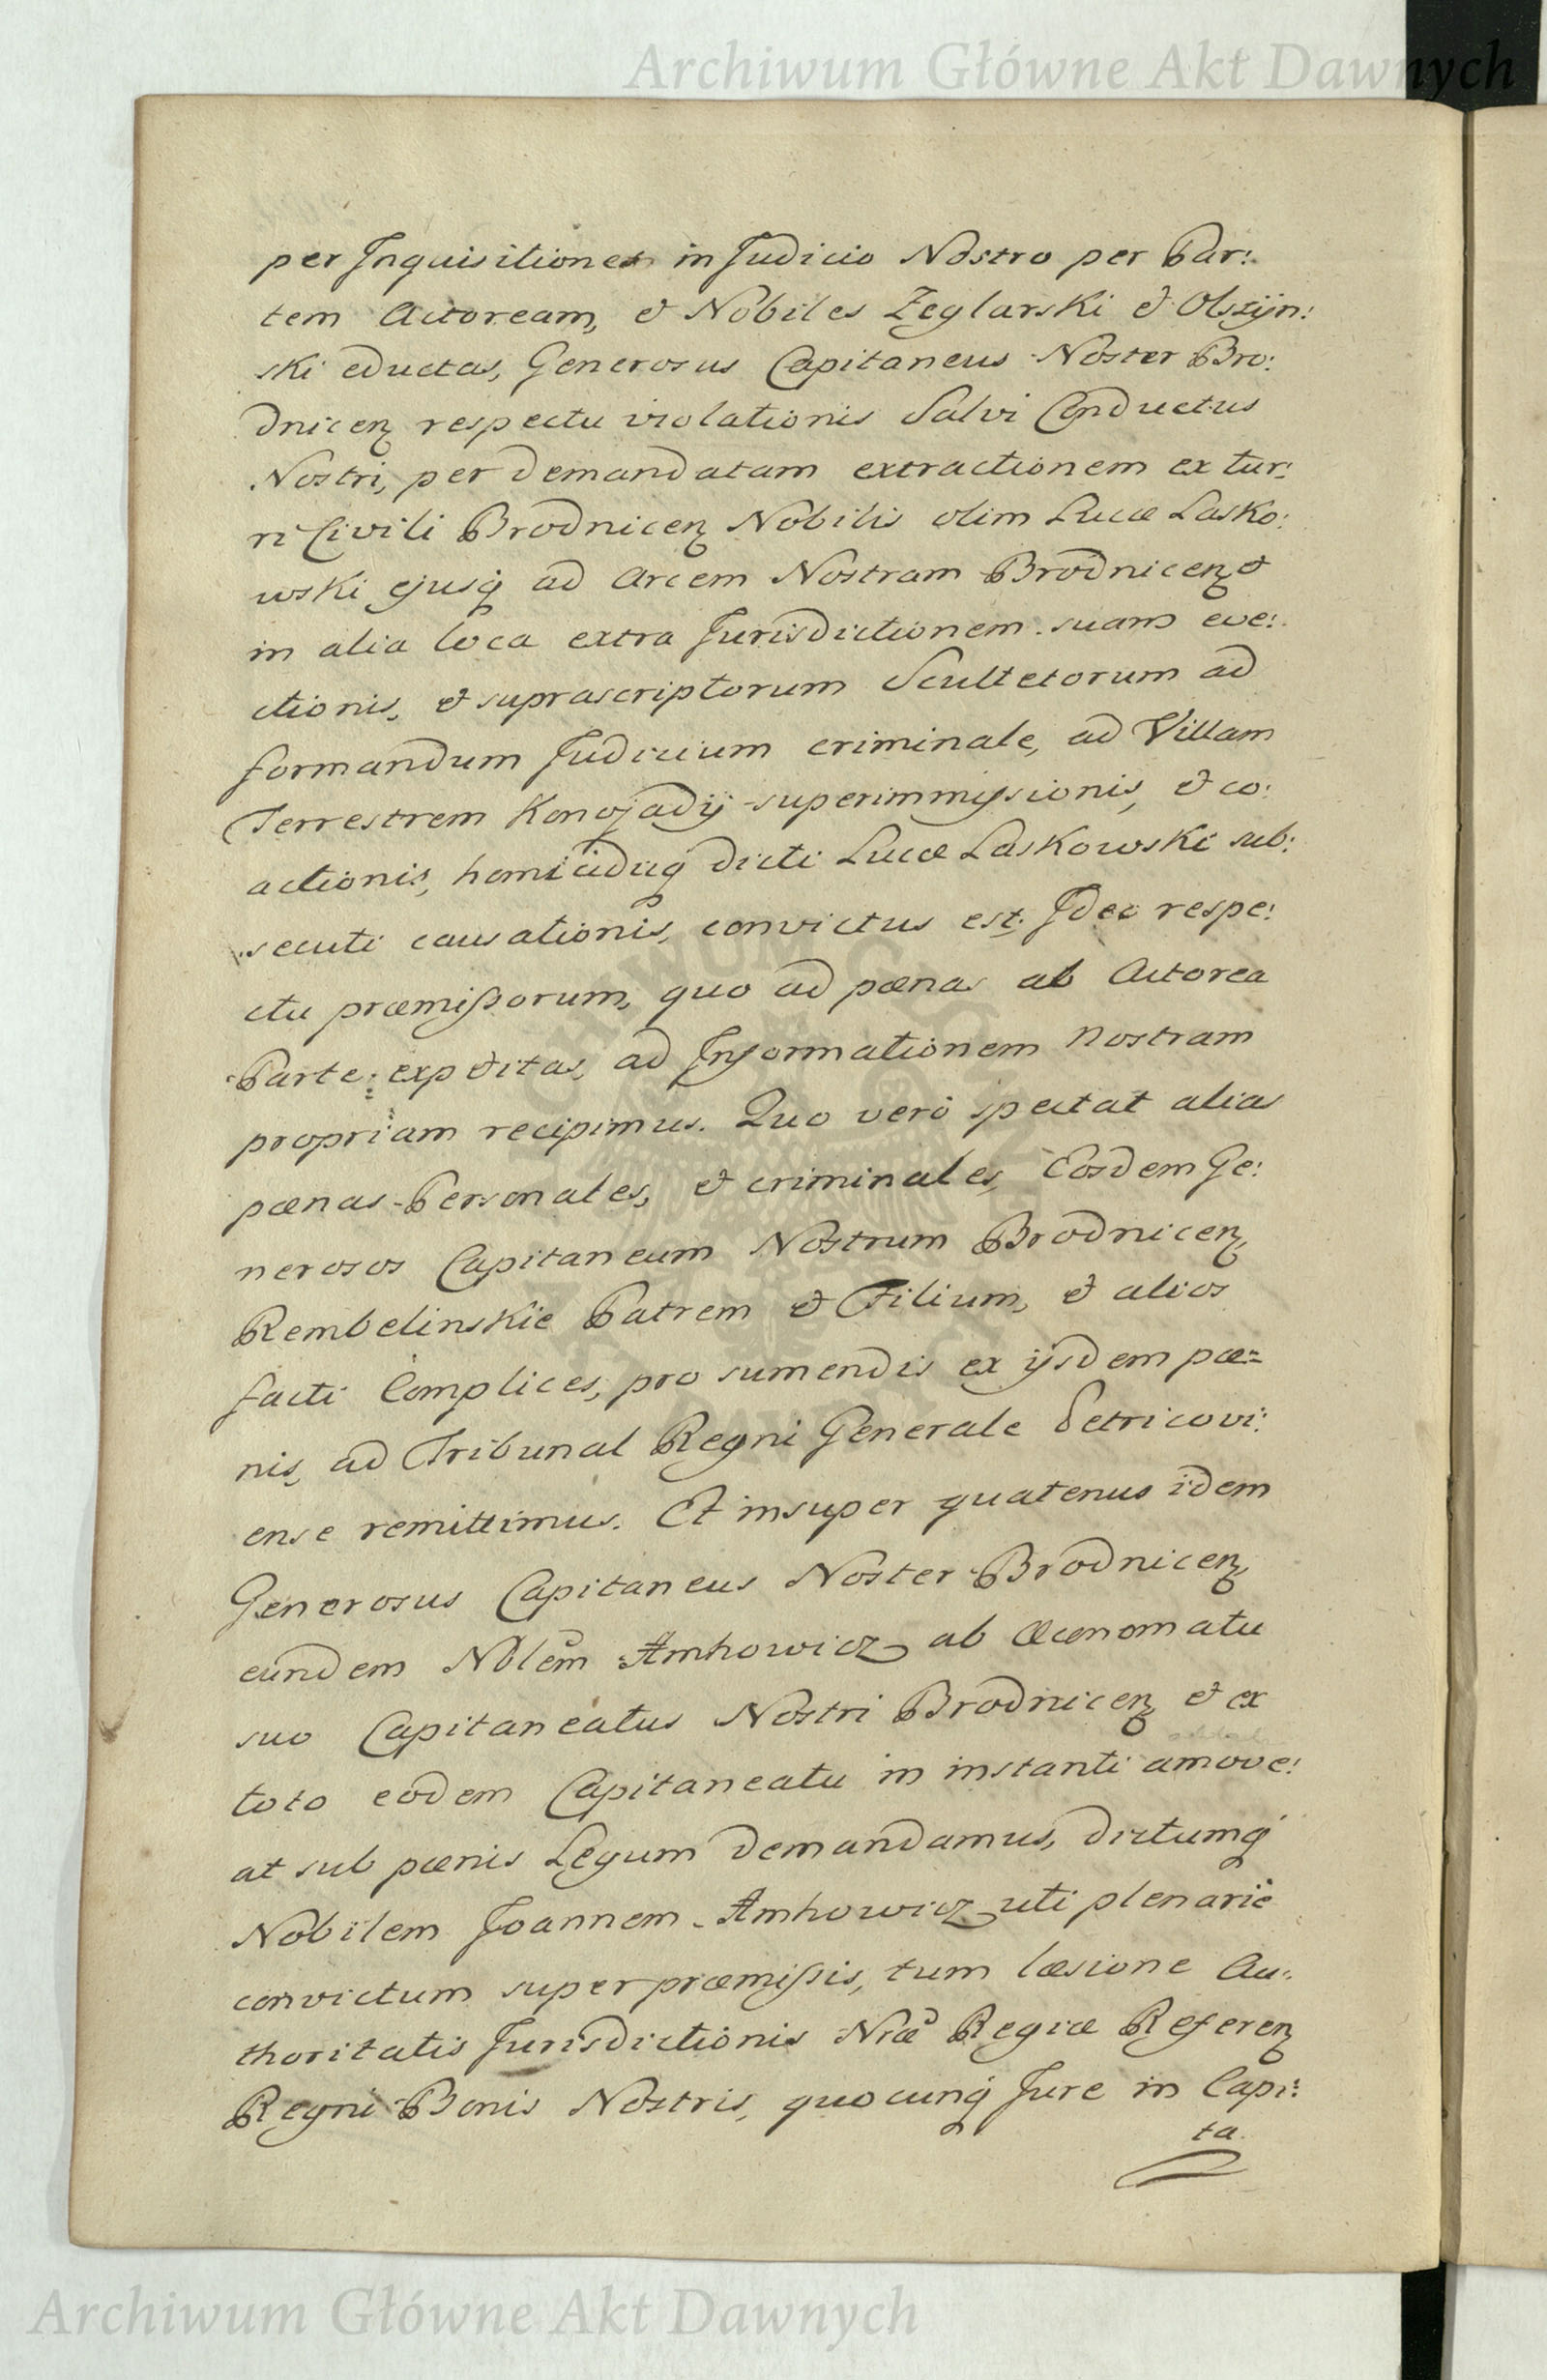 Archiwum Główne Akt Dawnych
per Inquisitiones in Judicio Nostro per Par:
tem Actoream, & Nobiles Zeglarski & Olszÿn:
ski eductas, Generosus Capitaneus Noster Bro:
dnicen̄ respectu violationis Salvi Conductus
Nostri, per demandatam extractionem ex tur:
ri Civili Brodnicen̄ Nobilis olim Lucæ Lasko:
wski ejusq̄ ad Arcem Nostram Brodnicen̄ &
in alia loca extra Jurisdictionem suam eve:
ctionis, & suprascriptorum Scultetorum ad
formandum Judicium criminale, ad Villam
Terrestrem Konojadÿ superimmissionis, & co:
actionis, homicidiiq̄ dicti Lucæ Laskowski sub:
secuti causationis, convictus est. Ideo respe:
ctu præmißorum, quo ad pænas ab Actorea
Parte expetitas, ad Informationem Nostram
propriam recipimus. Quo verò spectat alias
pænas Personales, & criminales, Eosdem Ge:
nerosos Capitaneum Nostrum Brodnicen̄,
Rembelinskie Patrem & Filium, & alios
facti Complices, pro sumendis ex ijsdem pæ=
nis, ad Tribunal Regni Generale Petricovi:
ense remittimus. Et insuper quatenus idem
Generosus Capitaneus Noster Brodnicen̄
eundem Nōlem Amhowicz ab Œconomatu
suo Capitaneatus Nostri Brodnicen̄ & ex
toto eodem Capitaneatu in instanti amove:
at sub pænis Legum demandamus, dictumq̄
Nobilem Joannem Amhowicz uti plenariè
convictum super præmißis, tum læsione Au:
thoritatis Jurisdictionis Nræ Regiæ Referen̄
Regni Bonis Nostris, quocunq̄ Jure in Capi:
ta
Archiwum Główne Akt Dawnych